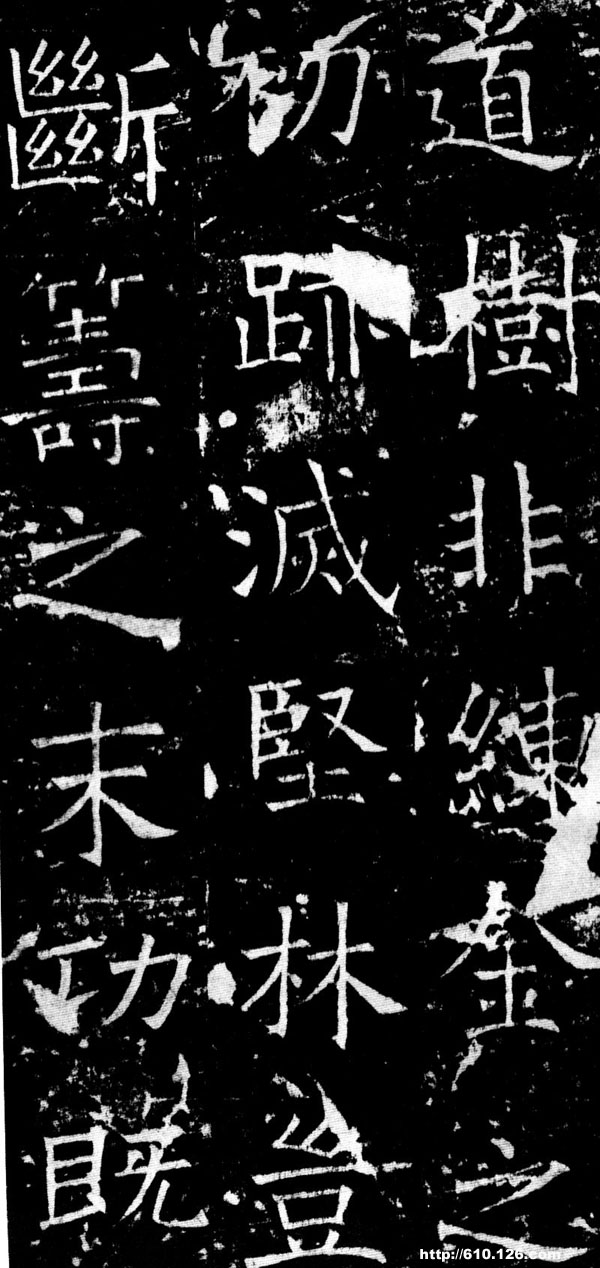 道樹非練金之
初跡滅堅林豈
斷籌之末功既
http://610.126.com